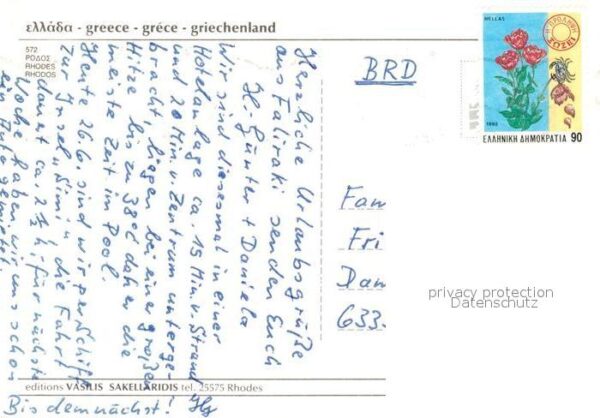 ελλάδα - greece - gréce - griechenland
572
ΡΟΔΟΣ
RHODES
RHODOS
Herzliche Urlaubsgrüße
aus Faliraki senden Euch
H.-Günter + Daniela
Wir sind diesesmal in einer
Hotelanlage ca. 15 Min. v. Strand
und 20 Min. v. Zentrum unterge-
bracht, liegen bei einer großen
Hitze bis zu 38°C daher die
meiste Zeit im Pool.
Heute 26.6. sind wir per Schiff
zur Insel "Simi" die Fahrt
dauert ca. 2½ h, für nächste
Woche haben wir uns schon
ein Auto gemietet.
Bis demnächst!
BRD
Fam
Fri
Dan
633
HELLAS
1992
ΕΛΛΗΝΙΚΗ ΔΗΜΟΚΡΑΤΙΑ 90
privacy protection
Datenschutz
editions VASILIS SAKELLARIDIS tel. 25575 Rhodes